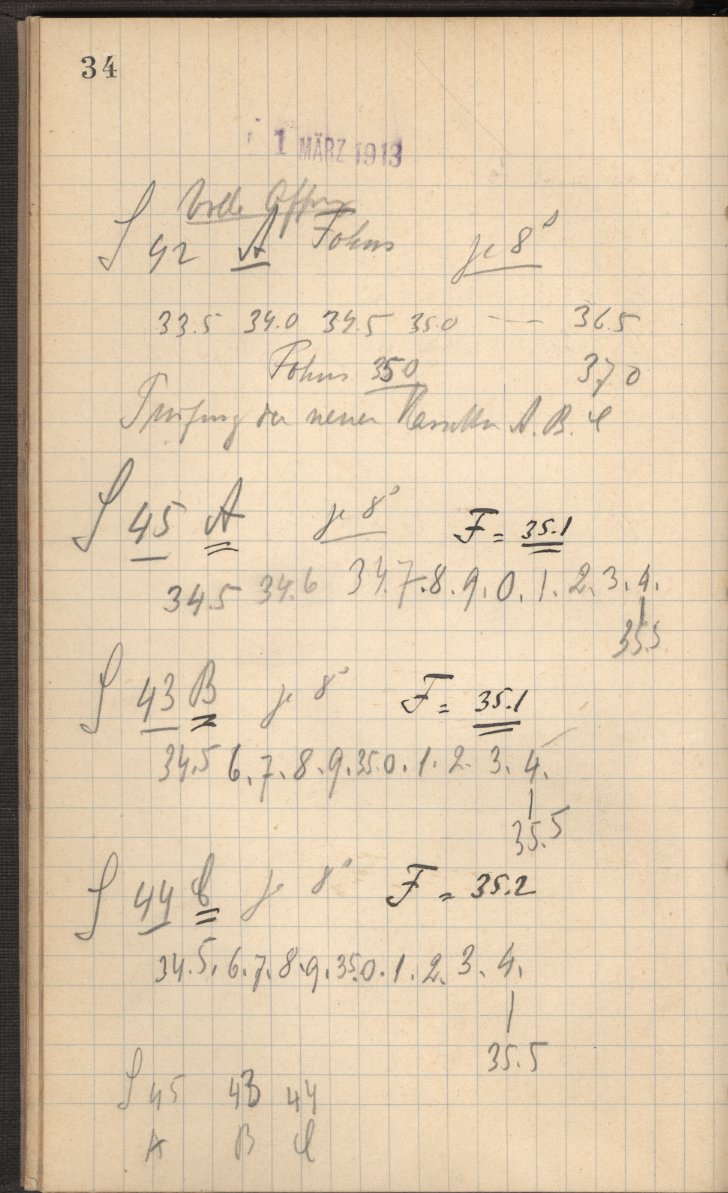 34
1 MÄRZ 1913
Volle Öffng
S 42 A Fokus je 8ˢ
33.5 34.0 34.5 35.0 — — 36.5
Fokus 35.0 37.0
Prüfung der neuen Kassetten A. B. C
S 45 A je 8ˢ F = 35.1
34.5 34.6 34.7.8.9.0.1.2.3.4.
35.5
S 43 B je 8ˢ F = 35.1
34.5 6.7.8.9.35.0.1.2.3.4.
35.5
S 44 C je 8ˢ F = 35.2
34.5.6.7.8.9.35.0.1.2.3.4.
35.5
S 45 43 44
A B C